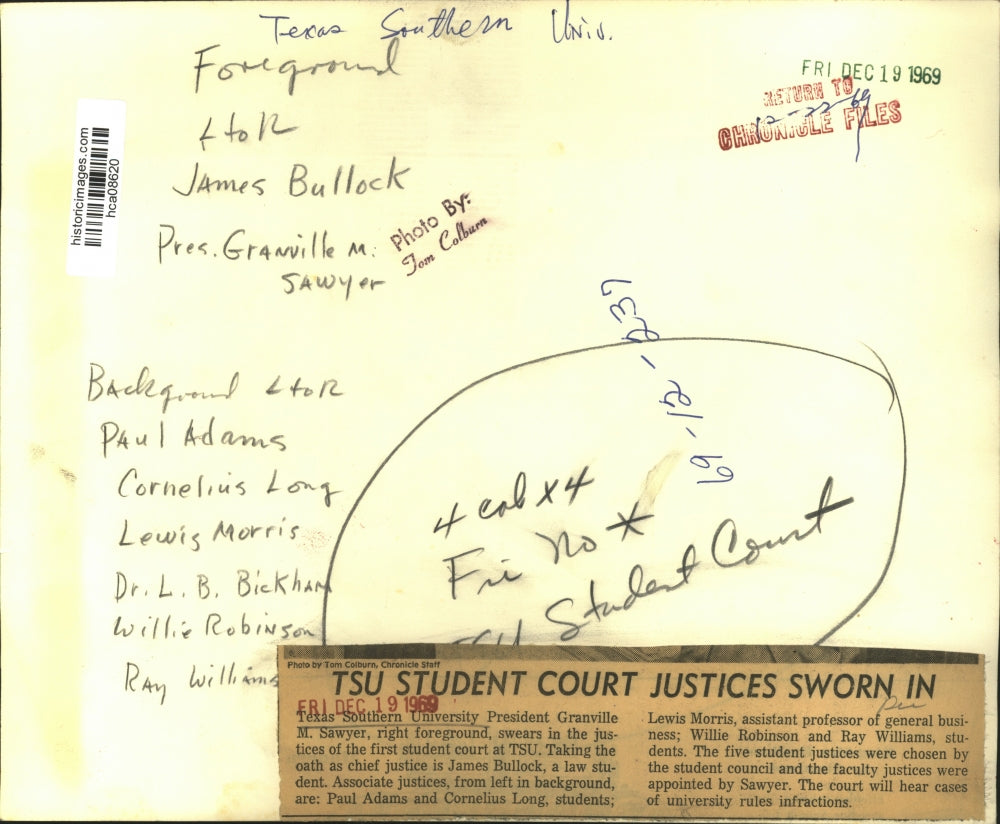 Texas Southern Univ.
Foreground
L to R
James Bullock
Pres. Granville M.
Sawyer
Photo By:
Tom Colburn
FRI DEC 19 1969
RETURN TO
12-22-69
CHRONICLE FILES
historicimages.com
hca08620
69-12-237
Background L to R
Paul Adams
Cornelius Long
Lewis Morris
Dr. L. B. Bickham
Willie Robinson
Ray Williams
4 col x 4
Fri No *
Student Court
Photo by Tom Colburn, Chronicle Staff
TSU STUDENT COURT JUSTICES SWORN IN
FRI DEC 19 1969
Texas Southern University President Granville
M. Sawyer, right foreground, swears in the jus-
tices of the first student court at TSU. Taking the
oath as chief justice is James Bullock, a law stu-
dent. Associate justices, from left in background,
are: Paul Adams and Cornelius Long, students;
Lewis Morris, assistant professor of general busi-
ness; Willie Robinson and Ray Williams, stu-
dents. The five student justices were chosen by
the student council and the faculty justices were
appointed by Sawyer. The court will hear cases
of university rules infractions.